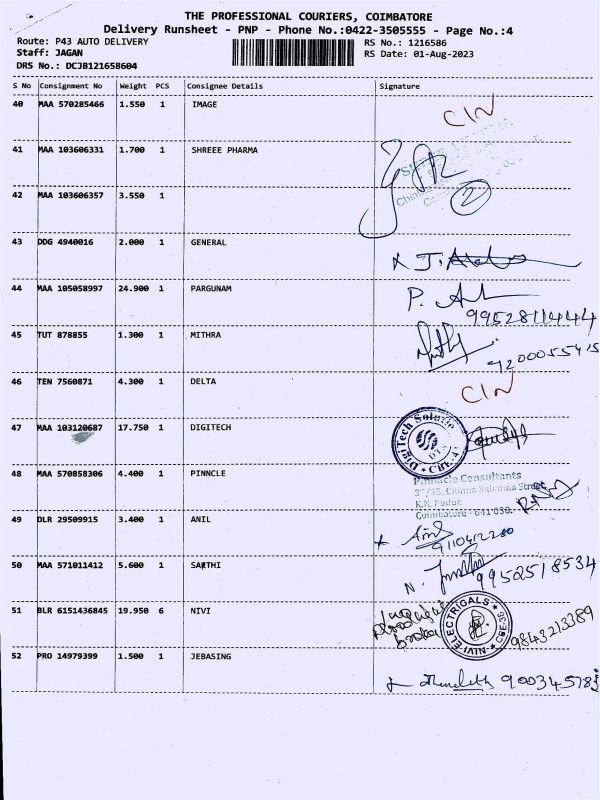 THE PROFESSIONAL COURIERS, COIMBATORE
Delivery Runsheet - PNP - Phone No.:0422-3505555 - Page No.:4
Route: P43 AUTO DELIVERY
RS No.: 1216586
Staff: JAGAN
RS Date: 01-Aug-2023
DRS No.: DCJB121658604
S No Consignment No Weight PCS Consignee Details Signature
40 MAA 570285466 1.550 1 IMAGE
CIN
41 MAA 103606331 1.700 1 SHREEE PHARMA
42 MAA 103606357 3.550 1
2
43 DDG 4940016 2.000 1 GENERAL
44 MAA 105058997 24.900 1 PARGUNAM
P.
9952811444
45 TUT 878855 1.300 1 MITHRA
46 TEN 7560871 4.300 1 DELTA
CIN
47 MAA 103120687 17.750 1 DIGITECH
DigiTech Solutio
CBE-4
48 MAA 570858306 4.400 1 PINNCLE
Pinnacle Consultants
K.K. Pudur,
Coimbatore - 641 038.
49 DLR 29509915 3.400 1 ANIL
9110412280
50 MAA 571011412 5.600 1 SARTHI
N.
9952518534
51 BLR 6151436845 19.950 6 NIVI
NIVI ELECTRICALS
CBE-38
9843213389
52 PRO 14979399 1.500 1 JEBASING